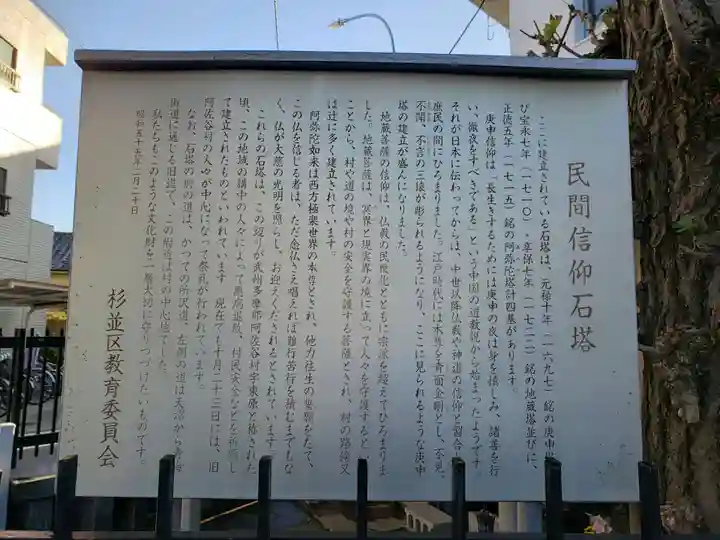 民間信仰石塔
ここに建立されている石塔は、元禄十年(一六九七)銘の庚申塔
び宝永七年(一七一〇)・享保七年(一七二二)銘の地蔵塔並びに、
正徳五年(一七一五)銘の阿弥陀塔計四基があります。
庚申信仰は「長生きするためには庚申の夜は身を慎しみ、諸善を行
い、徹夜をすべきである」という中国の道教説から始まったようです。
それが日本に伝わってからは、中世以降仏教や神道の信仰と習合し
庶民の間にひろまりました。江戸時代には本尊を青面金剛とし、不見、
不聞、不言の三猿が彫られるようになり、ここに見られるような庚申
塔の建立が盛んになりました。
地蔵菩薩の信仰は、仏教の民衆化とともに宗派を超えてひろまりま
した。地蔵菩薩は、冥界と現実界の境に立って人々を守護するという
ことから、村や道の境や村の安全を守護する菩薩とされ、村の路傍又
は辻に多く建立されています。
阿弥陀如来は西方極楽世界の本尊とされ、他力往生の要願をたて、
この仏を信じる者は、ただ念仏さえ唱えれば難行苦行を積むまでもな
く、仏が大慈の光明を照らし、お迎えくださるとされています。
これらの石塔は、この辺りが武州多摩郡阿佐谷村字東原と称された
頃、この地域の講中の人々によって悪病退散、村民安全などを祈願し
て建立されたものといわれています 現在でも十月二十三日には、旧
阿佐谷村の人々が中心になって祭礼が行われています。
なお、石塔の前の道は、かつての所沢道、左側の道は大宮から青梅
街道に通じる旧道で、この附近は村の中心地でした。
私たちもこのような文化財を一層大切に守りつづけたいものです。
昭和五十五年二月二十日
杉並区教育委員会